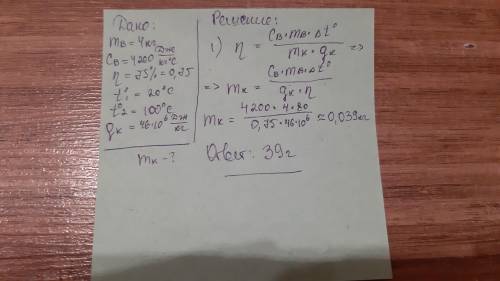 Дано:
mв = 4кг
Cв = 4200 Дж/кг·°C
η = 75% = 0,75
t°1 = 20°C
t°2 = 100°C
qк = 46·10⁶ Дж/кг
mк - ?
Решение:
1) η = Cв·mв·Δt° / mк·qк =>
=> mк = Cв·mв·Δt° / qк·η
mк = 4200·4·80 / 0,75·46·10⁶ ≈ 0,039кг
Ответ: 39г